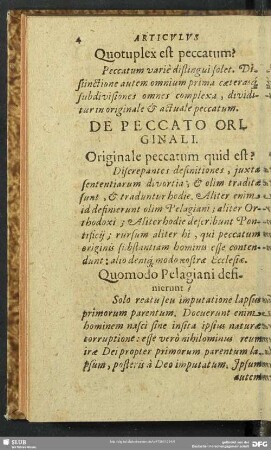 4 ARTICVLVS
Quotuplex est peccatum?
Peccatum variè distingui solet. Di-
stinctione autem omnium prima cæterasq́;
subdivisiones omnes complexa, dividi-
tur in originale & actuale peccatum.
DE PECCATO ORI-
GINALI.
Originale peccatum quid est?
Discrepantes definitiones, juxta
sententiarum divortia, & olim traditæ
sunt, & traduntur hodie. Aliter enim
id definierunt olim Pelagiani; aliter Or-
thodoxi; Aliter hodie describunt Pon-
tificij; rursum aliter hi, qui peccatum
originis substantiam hominis esse conten-
dunt: alio deniq; modo nostræ Ecclesiæ.
Quomodo Pelagiani defi-
nierunt?
Solo reatu seu imputatione lapsus
primorum parentum. Docuerunt enim
hominem nasci sine insita ipsius naturæ
corruptione: esse verò nihilominus reum
iræ Dei propter primorum parentum la-
psum, posteris à Deo imputatum. Ipsum
autem
SLUB
DFG